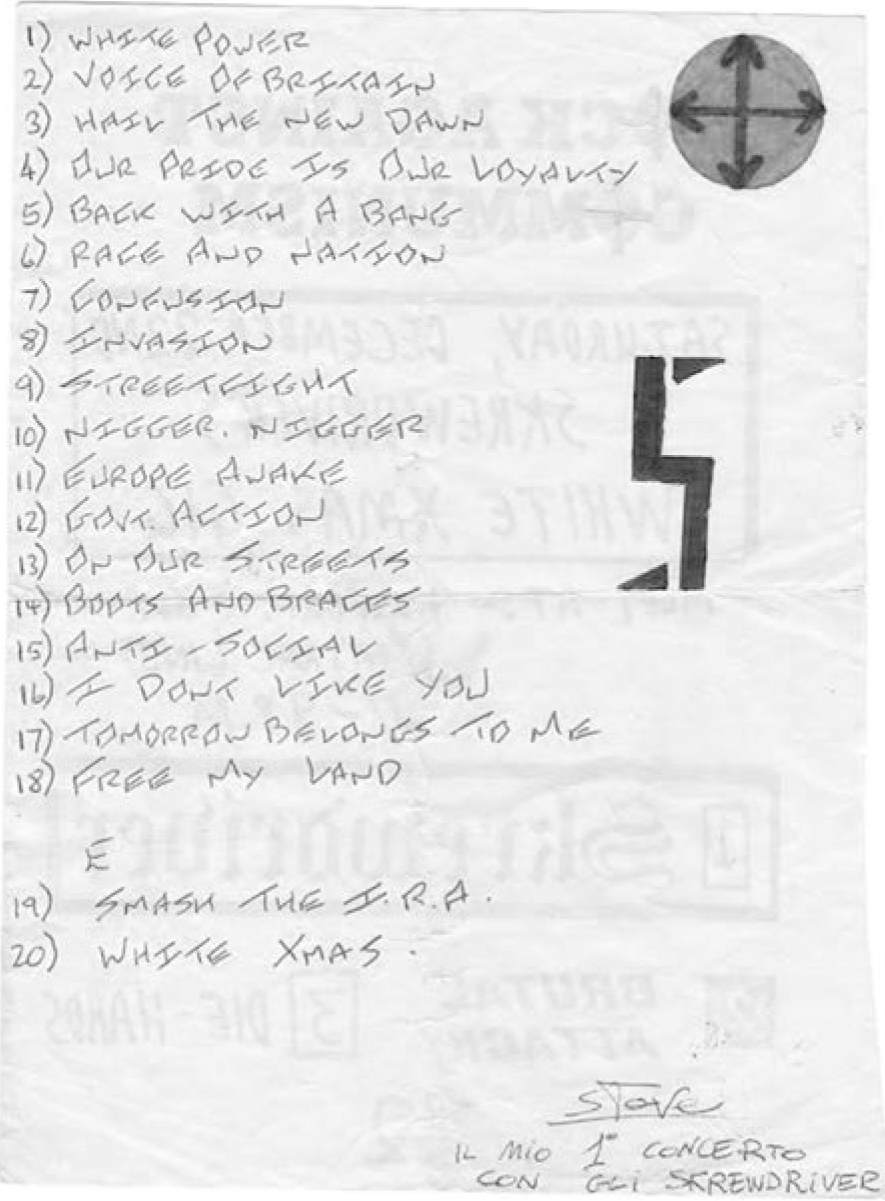 1) WHITE POWER
2) VOICE OF BRITAIN
3) HAIL THE NEW DAWN
4) OUR PRIDE IS OUR LOYALTY
5) BACK WITH A BANG
6) RACE AND NATION
7) CONFUSION
8) INVASION
9) STREETFIGHT
10) NIGGER. NIGGER
11) EUROPE AWAKE
12) GOVT. ACTION
13) ON OUR STREETS
14) BOOTS AND BRACES
15) ANTI-SOCIAL
16) I DONT LIKE YOU
17) TOMORROW BELONGS TO ME
18) FREE MY LAND
E
19) SMASH THE I.R.A.
20) WHITE XMAS.
STEVE
IL MIO 1° CONCERTO
CON GLI SKREWDRIVER